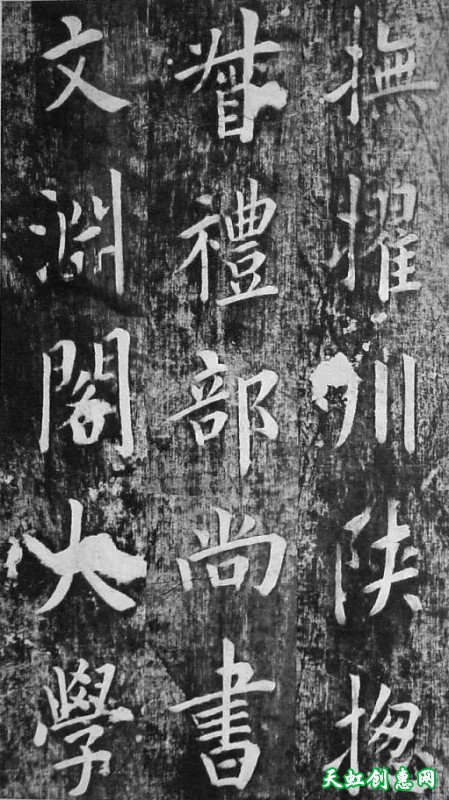 撫擢川陝揔
督禮部尚書
文淵閣大學
天虹创意网